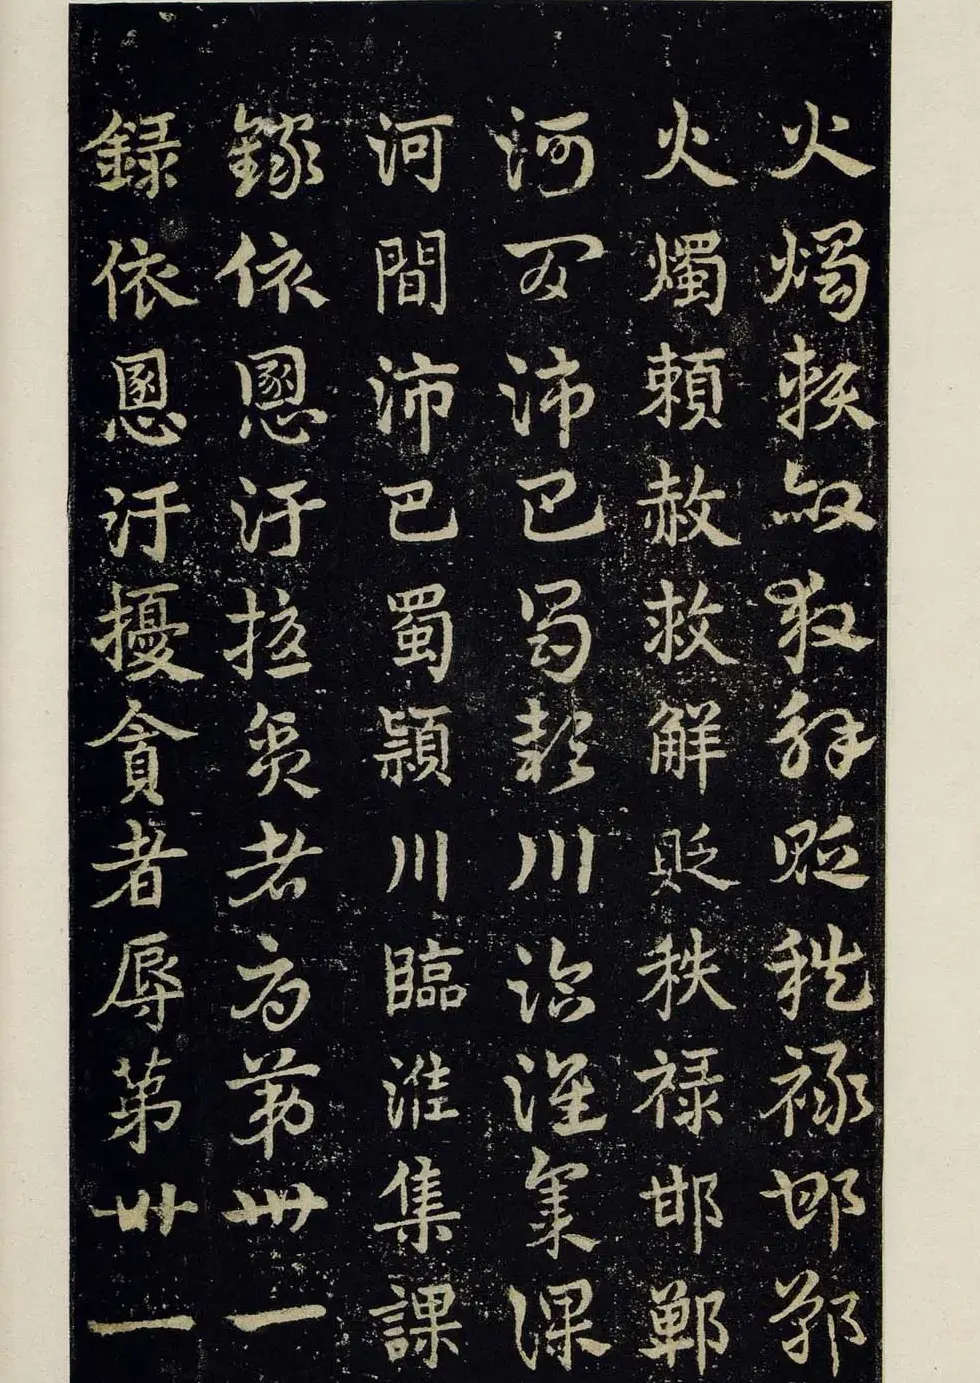 火燭頼赦救解貶秩禄邯鄲
火燭頼赦救解貶秩禄邯鄲
河間沛巴蜀頴川臨淮集課
河間沛巴蜀頴川臨淮集課
録依恩汙擾貪者辱第卅一
録依恩汙擾貪者辱第卅一